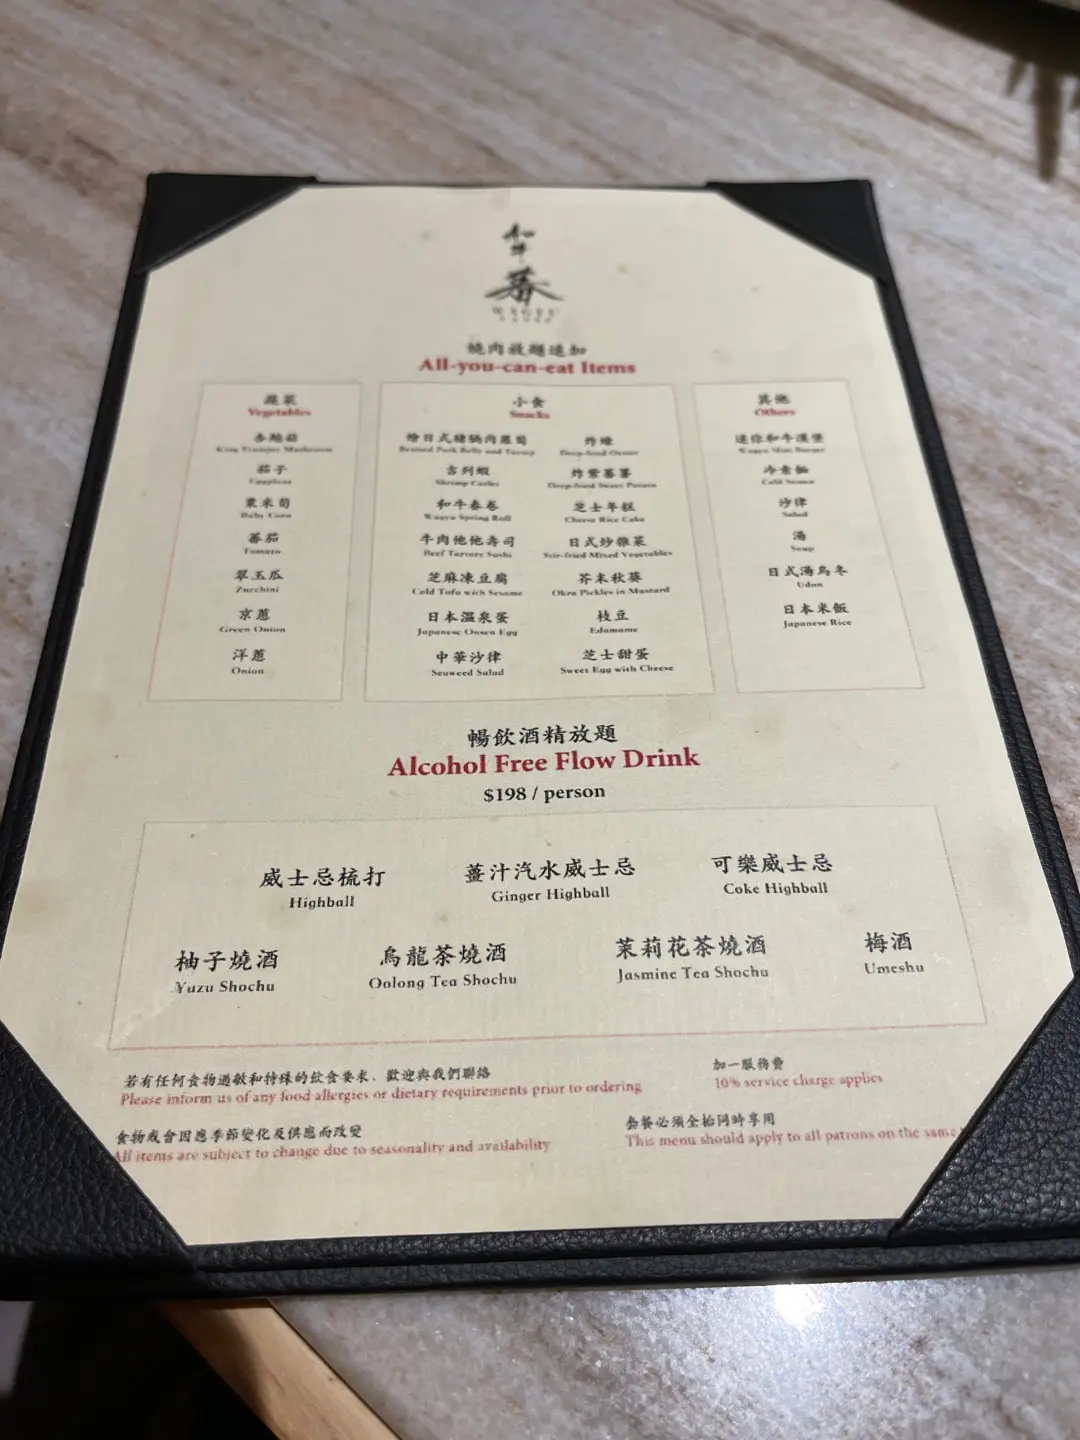 和牛
蕃
WAGYU
燒肉放題追加
All-you-can-eat Items
蔬菜
Vegetables
杏鮑菇
King Trumpet Mushroom
茄子
Eggplant
粟米筍
Baby Corn
蕃茄
Tomato
翠玉瓜
Zucchini
京蔥
Green Onion
洋蔥
Onion
小食
Snacks
燴日式豬腩肉蘿蔔
Braised Pork Belly and Turnip
吉列蝦
Shrimp Cutlet
和牛春卷
Wagyu Spring Roll
牛肉他他壽司
Beef Tartare Sushi
芝麻凍豆腐
Cold Tofu with Sesame
日本溫泉蛋
Japanese Onsen Egg
中華沙律
Seaweed Salad
炸蠔
Deep-fried Oyster
炸紫蕃薯
Deep-fried Sweet Potato
芝士年糕
Cheese Rice Cake
日式炒雜菜
Stir-fried Mixed Vegetables
芥末秋葵
Okra Pickles in Mustard
枝豆
Edamame
芝士甜蛋
Sweet Egg with Cheese
其他
Others
迷你和牛漢堡
Wagyu Mini Burger
冷素麵
Cold Somen
沙律
Salad
湯
Soup
日式湯烏冬
Udon
日本米飯
Japanese Rice
暢飲酒精放題
Alcohol Free Flow Drink
$198 / person
威士忌梳打
Highball
薑汁汽水威士忌
Ginger Highball
可樂威士忌
Coke Highball
柚子燒酒
Yuzu Shochu
烏龍茶燒酒
Oolong Tea Shochu
茉莉花茶燒酒
Jasmine Tea Shochu
梅酒
Umeshu
若有任何食物過敏和特殊的飲食要求，歡迎與我們聯絡
Please inform us of any food allergies or dietary requirements prior to ordering
加一服務費
10% service charge applies
食物或會因應季節變化及供應而改變
All items are subject to change due to seasonality and availability
套餐必須全枱同時享用
This menu should apply to all patrons on the same